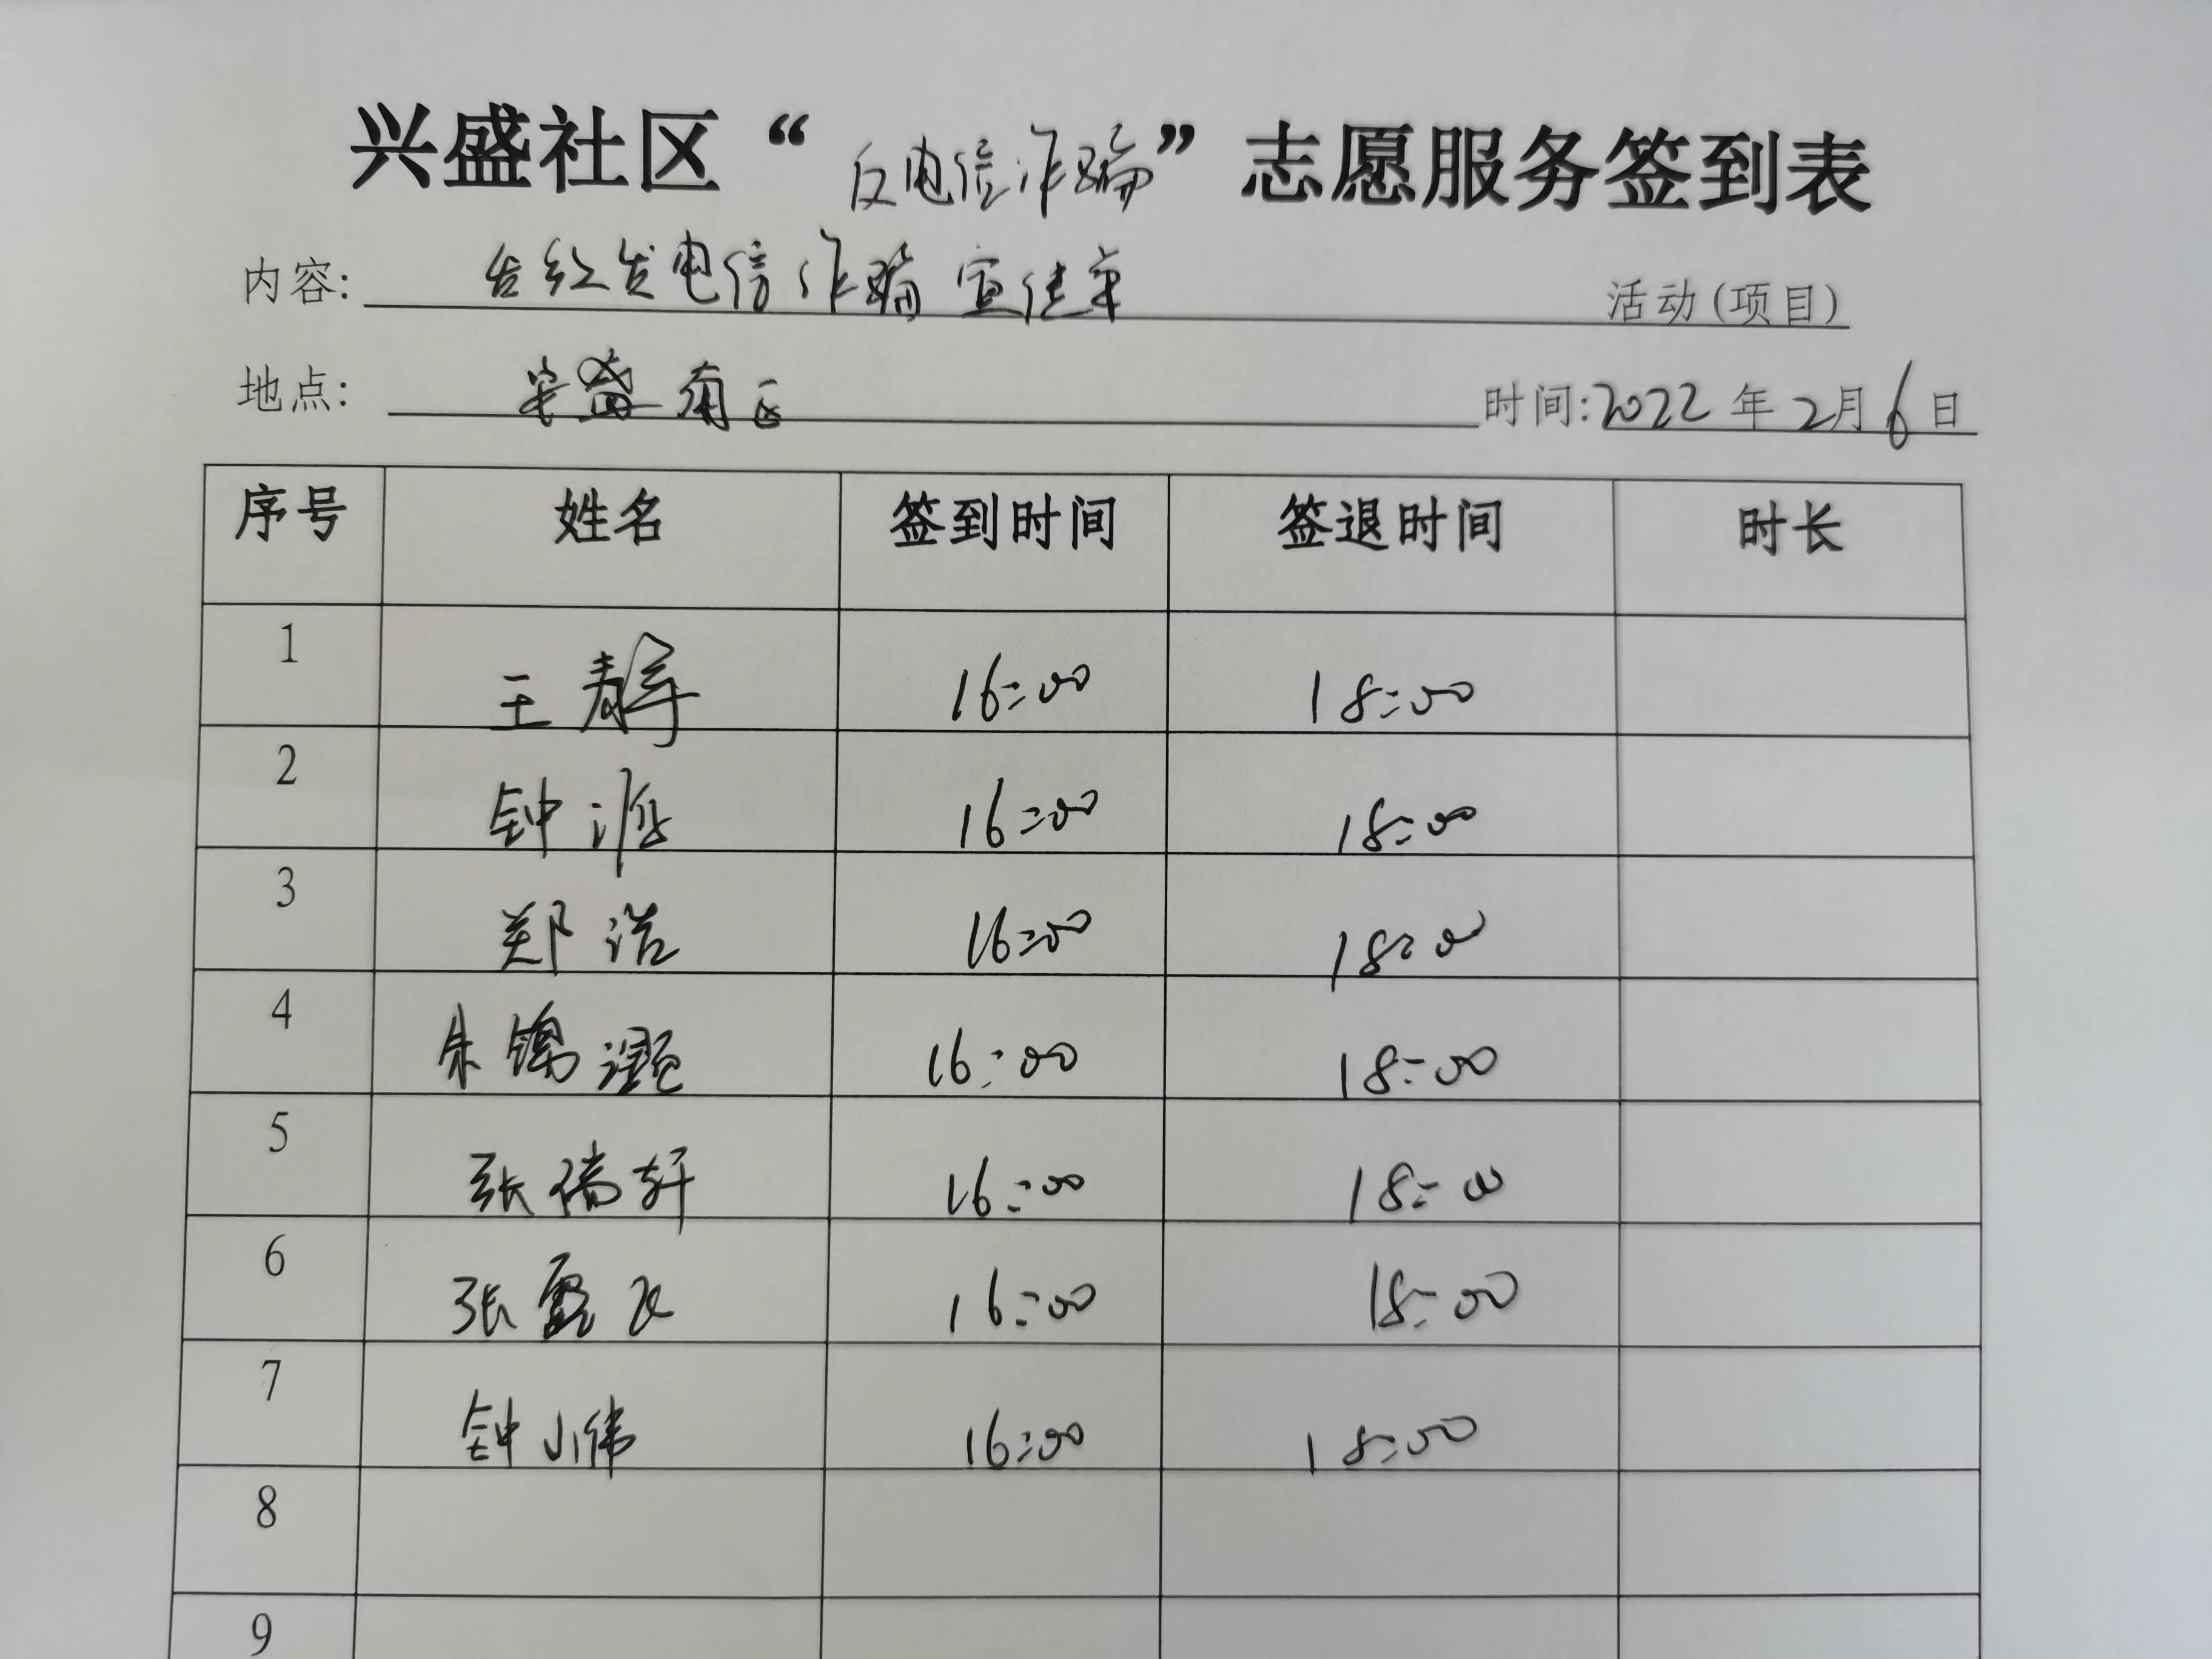 兴盛社区“反电信诈骗”志愿服务签到表
内容: 发电信诈骗宣传单 活动(项目)
地点: 安盛南区 时间:2022年2月6日
序号 姓名 签到时间 签退时间 时长
1 王 16:00 18:00
2 钟 16:00 18:00
3 郑浩 16:00 18:00
4 朱锦灏 16:00 18:00
5 张瑞轩 16:00 18:00
6 张 16:00 18:00
7 钟小伟 16:00 18:00
8
9